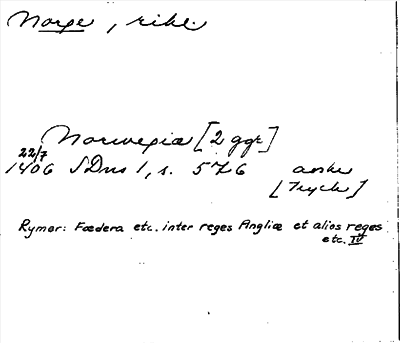 Norge, rike.
Norwegiæ [2 ggr]
22/7
1406 SDns 1, s. 576 avskr
[Tryck]
Rymer: Fœdera etc. inter reges Angliæ et alios reges
etc. IV